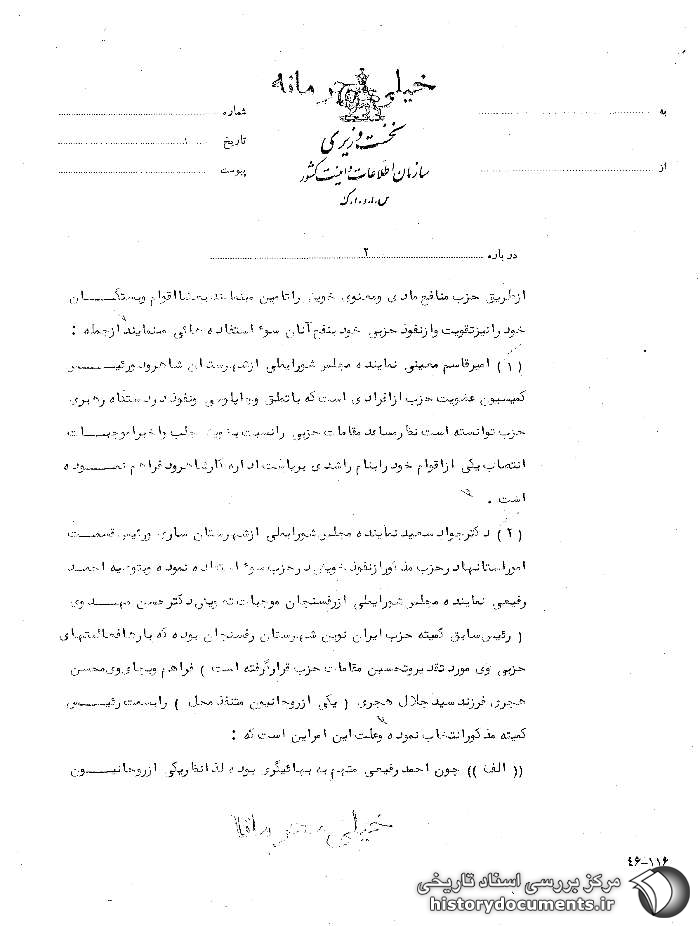 خیلی محرمانه
به
شماره
نخست وزیری
تاریخ
از
سازمان اطلاعات و امنیت کشور
پیوست
س.ا.و.ا.ک
درباره ۲
از طریق حزب منافع مادی و معنوی خویش را تامین مینمایند بعضا اقوام و بستگان
خود را نیز تقویت و از نفوذ حزبی خود بنفع آنان سوء استفاده هائی مینمایند از جمله :
( ۱ ) امیر قاسم معینی نماینده مجلس شورایملی از شهرستان شاهرود و رئیس
کمیسیون عضویت حزب از افرادی است که با تملق و چاپلوسی و نفوذ در دستگاه رهبری
حزب توانسته است نظر مساعد مقامات حزبی را نسبت بخود جلب و اخیرا موجبات
انتصاب یکی از اقوام خود را بنام راشدی بریاست اداره کار شاهرود فراهم نموده
است .
( ۲ ) دکتر جواد سعید نماینده مجلس شورایملی از شهرستان ساری و رئیس قسمت
امور استانها در حزب مذکور از نفوذ خویش در حزب سوء استفاده نموده و بتوصیه احمد
رفیعی نماینده مجلس شورایملی از رفسنجان موجبات تعویض دکتر حسن مهدوی
( رئیس سابق کمیته حزب ایران نوین شهرستان رفسنجان بوده که بارها فعالیتهای
حزبی وی مورد تقدیر و تحسین مقامات حزب قرار گرفته است ) فراهم و بجای وی محسن
هجری فرزند سید جلال هجری ( یکی از روحانیون متنفذ محل ) را بسمت رئیس
کمیته مذکور انتخاب نموده و علت این امر این است که :
(( الف )) چون احمد رفیعی متهم به بهائیگری بوده لذا نظر یکی از روحانیون
خیلی محرمانه
۴۶-۱۱۶
مرکز بررسی اسناد تاریخی
historydocuments.ir